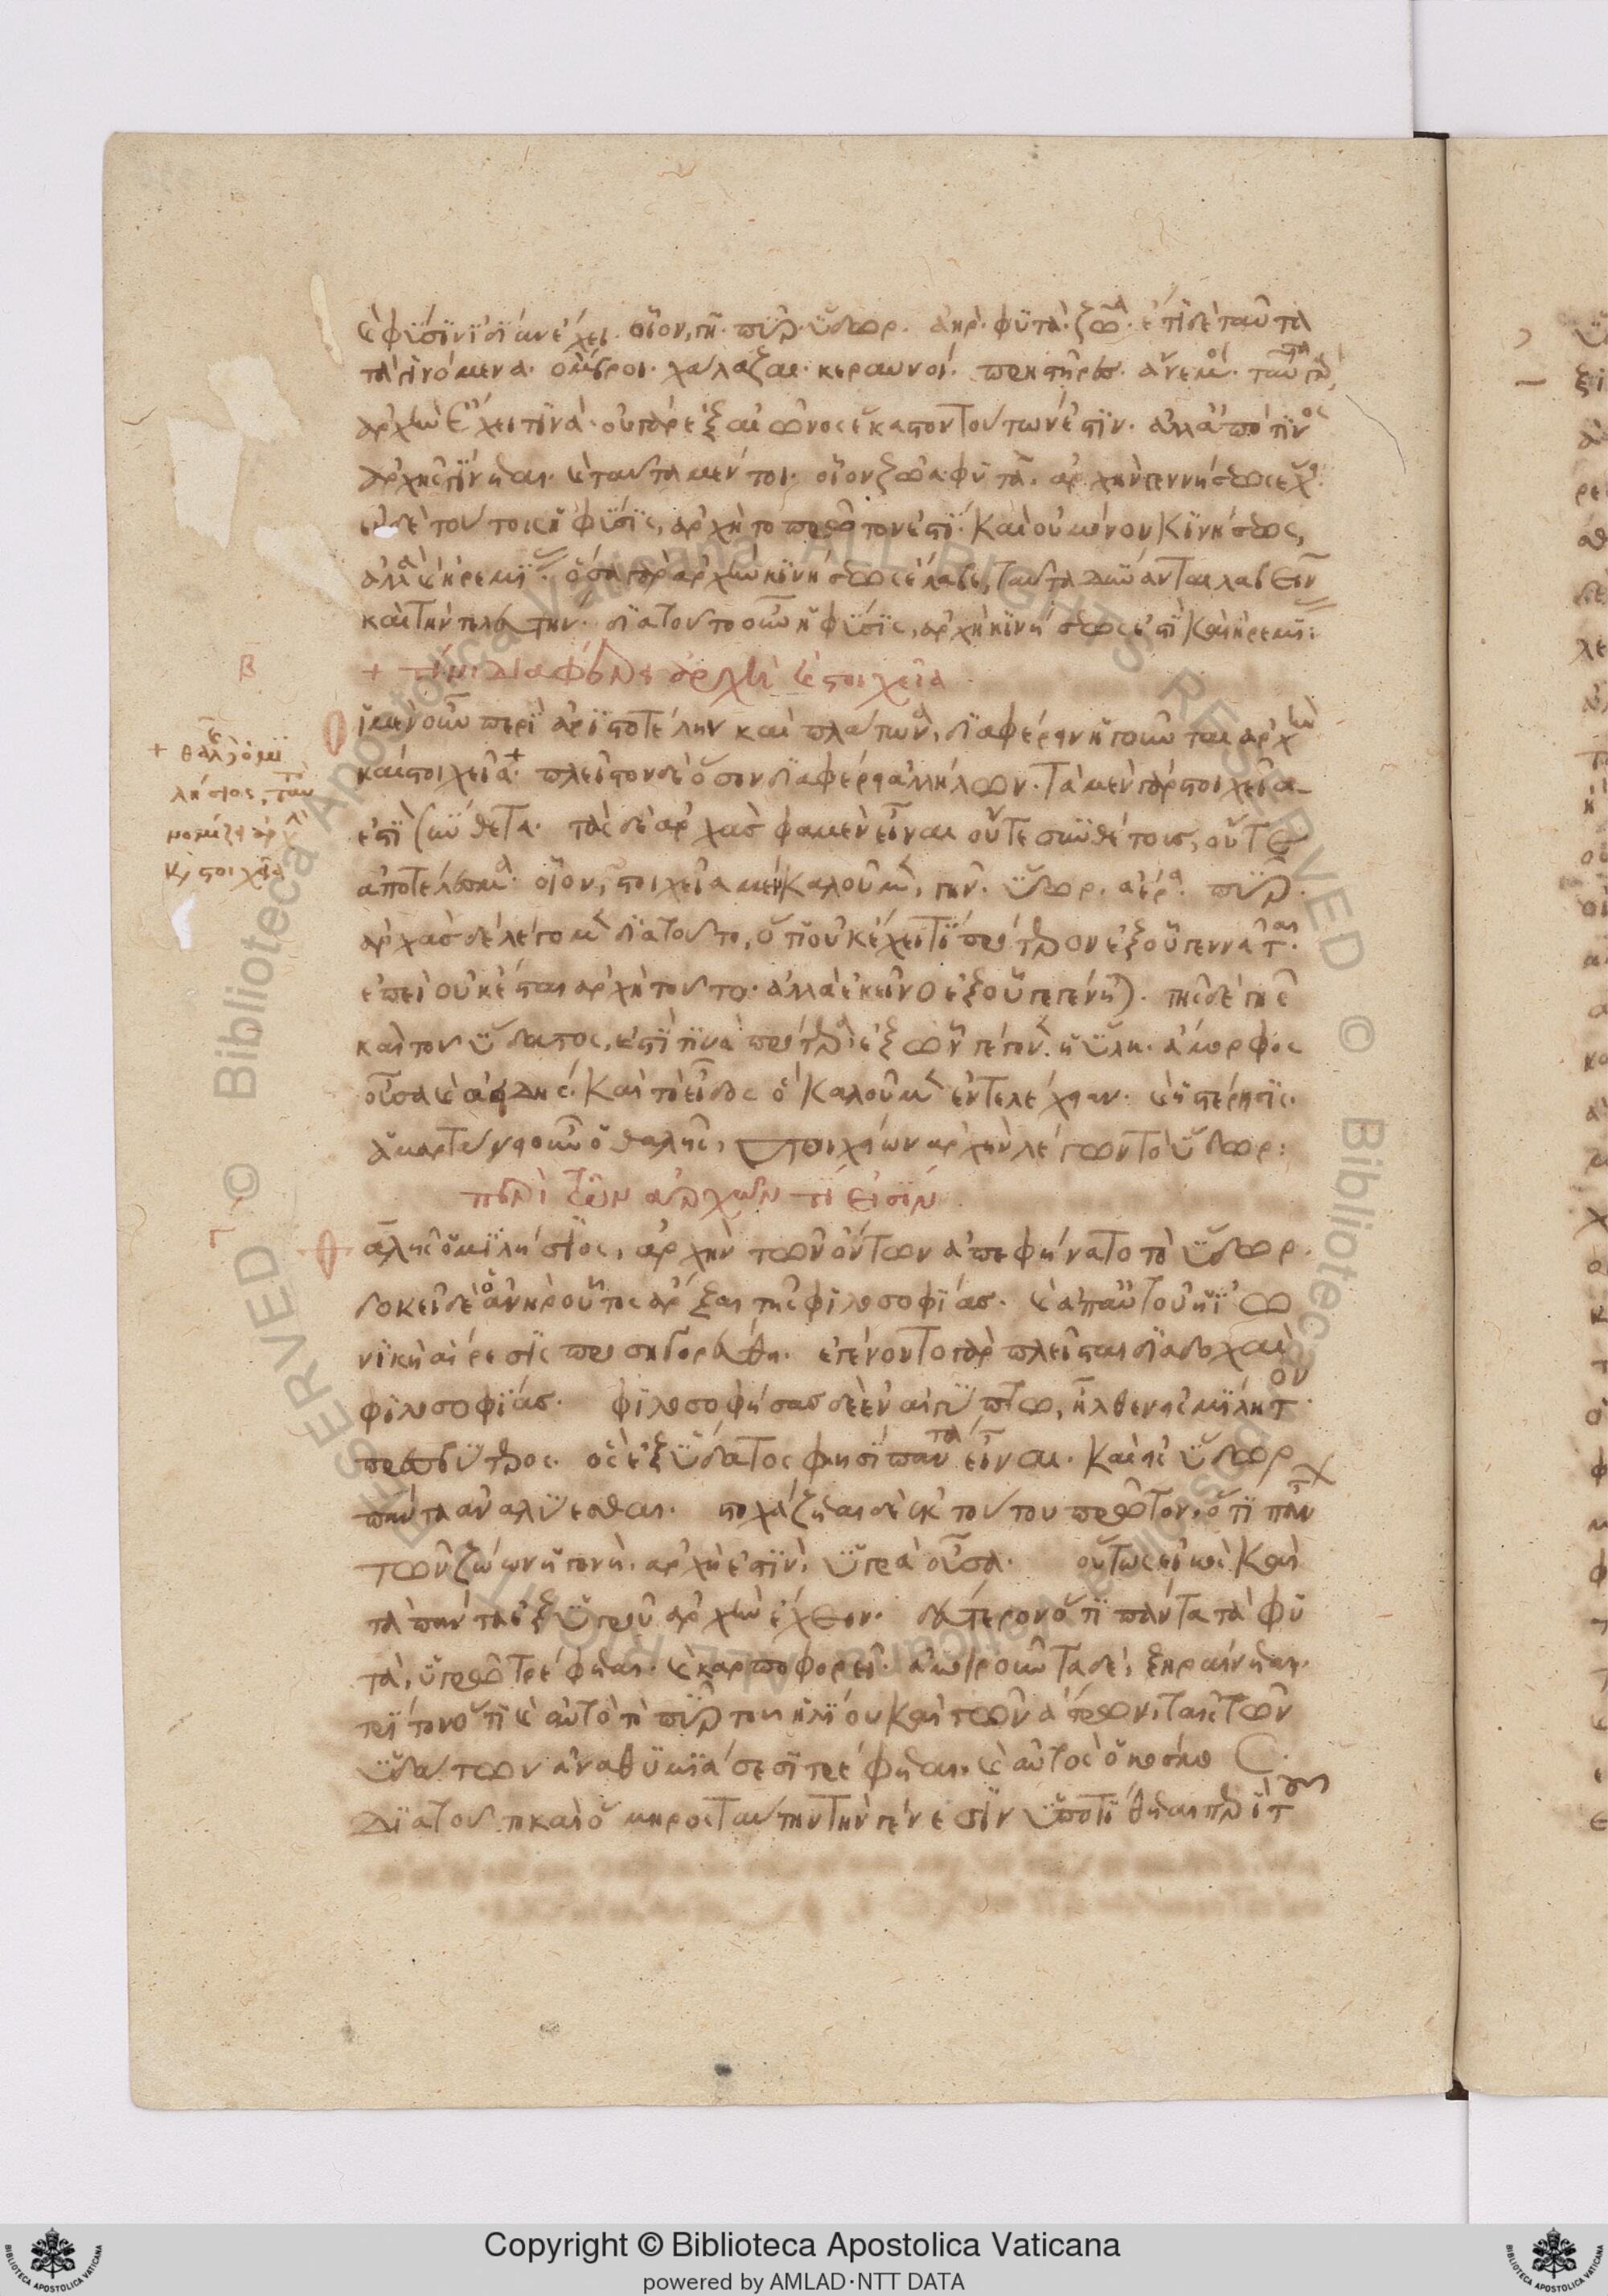 καὶ φύσιν ἰδίαν ἔχει. οἷον, γῆ. πῦρ. ὕδωρ. ἀήρ. φυτά. ζῶα. ἔτι δὲ ταῦτα
τὰ γινόμενα. ὄμβροι. χάλαζαι. κεραυνοί. πρηστῆρες. ἄνεμοι. ταῦτα γὰρ
ἀρχὴν ἔχει τινά. οὐ γὰρ ἐξ αἰῶνος ἕκαστον τούτων ἐστίν. ἀλλ' ἀπό τινος
ἀρχῆς γίνεται. καὶ ταῦτα μέντοι. οἷον ζῶα φυτά. ἀρχὴν γεννήσεως ἔχει.
ἐν δὲ τούτοις ἡ φύσις, ἀρχὴ τὸ πρῶτόν ἐστι. καὶ οὐ μόνον κινήσεως,
ἀλλὰ καὶ ἠρεμίας. ὅσα γὰρ ἀρχὴν κινήσεως ἔλαβε, ταῦτα δύνανται λαβεῖν
καὶ τελευτήν. διὰ τοῦτο οὖν ἡ φύσις, ἀρχὴ κινήσεως ἐστὶ καὶ ἠρεμίας:
Β + τίνι διαφέρει ἀρχὴ καὶ στοιχεῖα
Οἱ μὲν οὖν περὶ ἀριστοτέλην καὶ πλάτωνα, διαφέρειν ἡγοῦνται ἀρχὴν
καὶ στοιχεῖα+. πλεῖστον δὲ ὅσον διαφέρει ἀλλήλων. τὰ μὲν γὰρ στοιχεῖα
ἐστὶ σύνθετα. τὰς δὲ ἀρχὰς φαμὲν εἶναι οὔτε συνθέτους, οὔτε
ἀποτελέσματα. οἷον, στοιχεῖα μὲν καλοῦμεν, γῆν. ὕδωρ. ἀέρα. πῦρ.
ἀρχὰς δὲ λέγομεν διὰ τοῦτο, ὅτι οὐκ ἔχει τι πρότερον ἐξ οὗ γεννᾶται.
ἐπεὶ οὐκ ἔσται ἀρχὴ τοῦτο. ἀλλὰ ἐκεῖνο ἐξ οὗ γεγένηται. τῆς δὲ γῆς
καὶ τοῦ ὕδατος, ἐστί τινα πρότερα ἐξ ὧν γέγονεν. ἡ ὕλη. ἄμορφος
οὖσα καὶ ἀειδής. καὶ τὸ εἶδος ὃ καλοῦμεν ἐντελέχειαν. καὶ ἡ στέρησις.
ἁμαρτάνει οὖν ὁ θαλῆς, στοιχείων ἀρχὴν λέγων τὸ ὕδωρ:
+ θαλῆς ὁ μι
λήσιος, ταὐ
νομίζει ἀρχὴν
καὶ στοιχεῖα
Γ περὶ τῶν ἀρχῶν τί εἰσίν
Θαλῆς ὁ μιλήσιος, ἀρχὴν τῶν ὄντων ἀπεφήνατο τὸ ὕδωρ.
δοκεῖ δὲ ὁ ἀνὴρ οὗτος ἄρξαι τῆς φιλοσοφίας. καὶ ἀπ' αὐτοῦ ἡ ἰω
νικὴ αἵρεσις προσηγορεύθη. ἐγένοντο γὰρ πλεῖσται διαδοχαὶ
φιλοσοφίας. φιλοσοφήσας δὲ ἐν αἰγύπτω, ἦλθεν εἰς μίλητον
πρεσβύτερος. ὃς ἐξ ὕδατος φησὶ πάντα εἶναι. καὶ εἰς ὕδωρ
πάντα ἀναλύεσθαι. στοχάζεται δὲ ἐκ τούτου πρῶτον, ὅτι πάν
των ζώων ἡ γονὴ. ἀρχή ἐστιν, ὑγρὰ οὖσα. οὕτως εἰκὸς καὶ
τὰ πάντα ἐξ ὑγροῦ ἀρχὴν ἔχειν. δεύτερον ὅτι πάντα τὰ φυ
τά, ὑγρῶ τρέφεται. καὶ καρποφορεῖ. ἀμοιροῦντα δέ, ξηραίνεται.
τρίτον ὅτι καὶ αὐτὸ τὸ πῦρ τοῦ ἡλίου καὶ τῶν ἄστρων, ταῖς τῶν
ὑδάτων ἀναθυμιάσεσι τρέφεται. καὶ αὐτὸς ὁ κόσμος.
διὰ τοῦτο καὶ ὅμηρος ταύτην τὴν γένεσιν ὑποτίθεται περὶ τοῦ